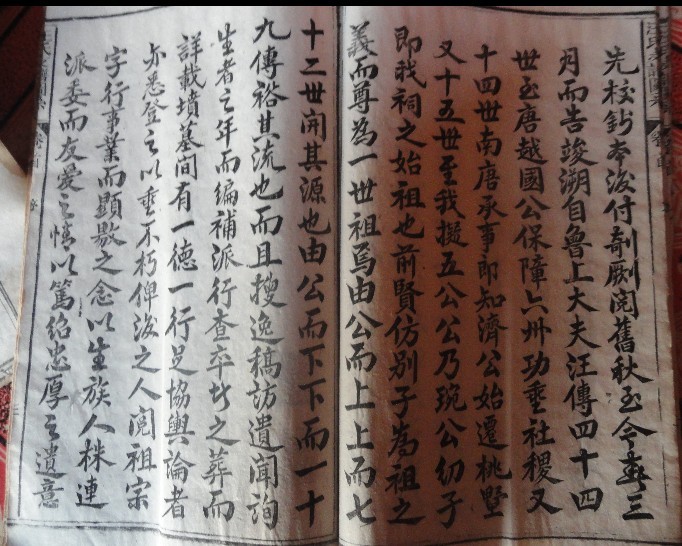 先校鈔本後付剞劂閱舊秋至今春三
月而告竣溯自魯上大夫汪傳四十四
世至唐越國公保障六州功垂社稷又
十四世南唐承事郎知濟公始遷桃墅
又十五世至我擬五公公乃琬公幼子
即我祠之始祖也前賢仿别子為祖之
義而尊為一世祖焉由公而上上而七
十二世開其源也由公而下下而一十
九傳裕其流也而且搜逸稿訪遺聞詢
生者之年而編補派行查卒者之葬而
詳載墳墓間有一德一行足協輿論者
亦悉登之以垂不朽俾後之人閱祖宗
字行事業而顯敭之念以生族人株連
派委而友愛之情以篤紹忠厚之遺意